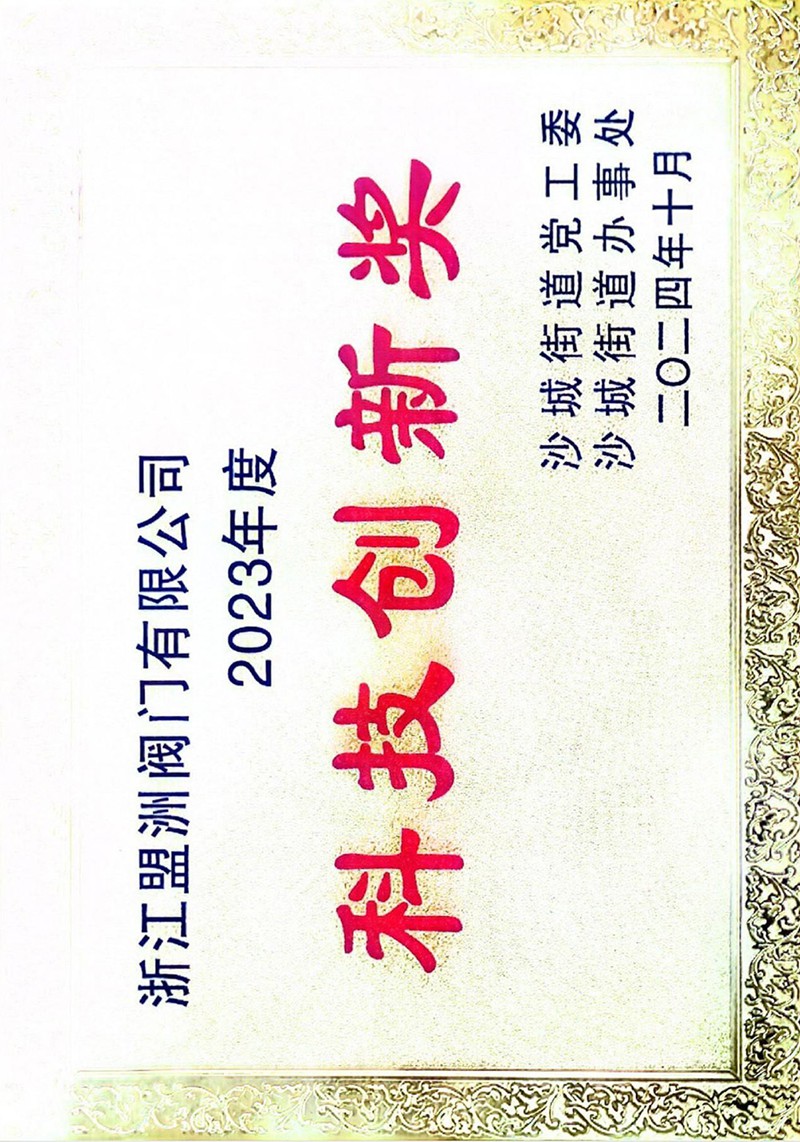 浙江盟洲阀门有限公司
2023年度
科技创新奖
沙城街道党工委
沙城街道办事处
二〇二四年十月